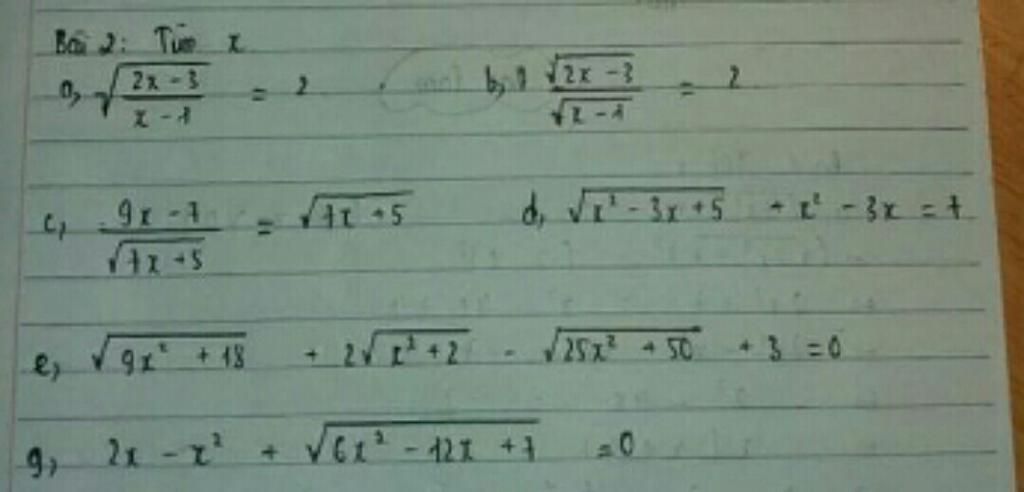 Bài 2: Tìm x
a, √((2x - 3)/(x - 1)) = 2 b, √(2x - 3)/√(x - 1) = 2
c, (9x - 7)/√(7x + 5) = √(7x + 5) d, √(x² - 3x + 5) + x² - 3x = 7
e, √(9x² + 18) + 2√(x² + 2) - √(25x² + 50) + 3 = 0
g, 2x - x² + √(6x² - 12x + 7) = 0